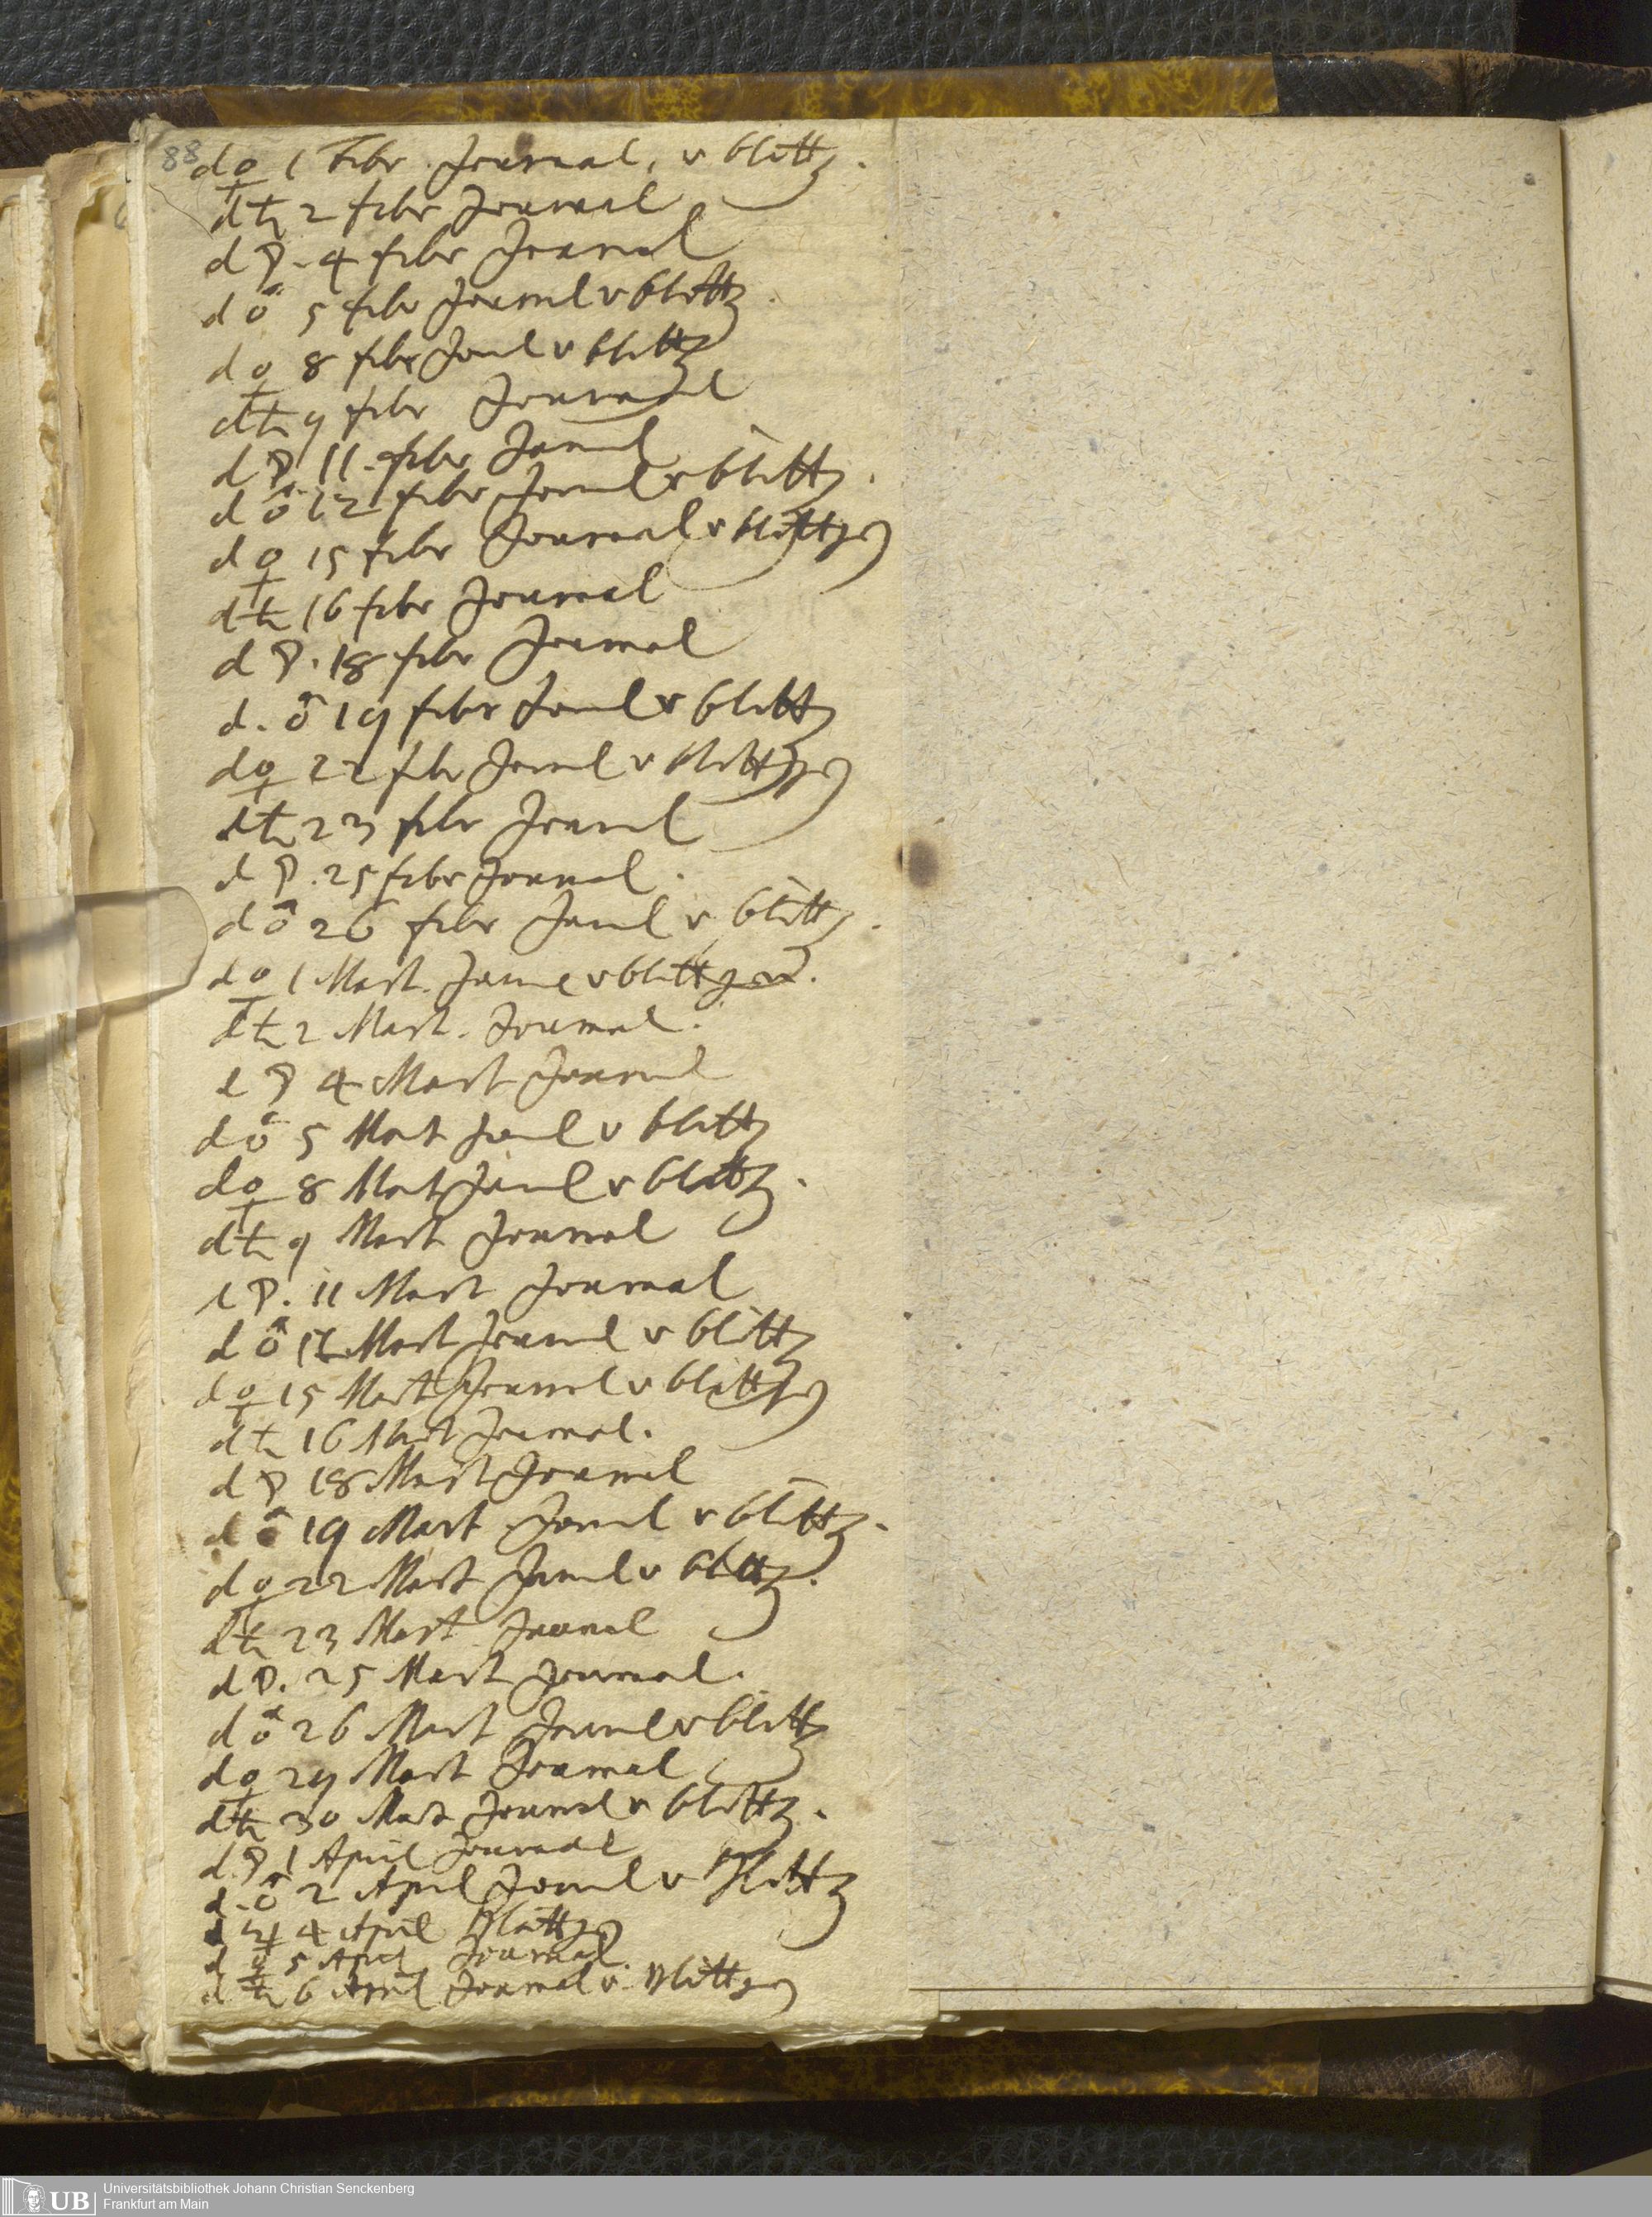 88
d ♀ 1 Febr. Journal, v blättz.
d ♄ 2 febr Journal
d ☽. 4 febr Journal
d ♂ 5 febr Journl v blättz.
d ♀ 8 febr Jounl v blättz
d ♄ 9 febr Journal
d ☽. 11. febr Journl
d ♂ 12 febr Journl v blättz.
d ♀ 15 febr Journal v blättgn
d ♄ 16 febr Journal
d ☽. 18 febr Journal
d. ♂ 19 febr Jounl v blättz
d ♀ 22 febr Journl v blättgn
d ♄ 23 febr Journl
d ☽. 25 febr Journal.
d ♂ 26 febr Jounl v blättz.
d ♀ 1 Mart. Journl v blättgn.
d ♄ 2 Mart. Journal.
d ☽ 4 Mart Journal
d ♂ 5 Mart Jounl v blättz
d ♀ 8 Mart Jounl v blättz.
d ♄ 9 Mart Journal
d ☽. 11 Mart Journal
d ♂ 12 Mart Journl v blättz
d ♀ 15 Mart Journal v blättgn
d ♄ 16 Mart Journal.
d ☽ 18 Mart Journal
d ♂ 19 Mart Jounl v blättz.
d ♀ 22 Mart Jounl v blättz.
d ♄ 23 Mart Journal
d ☽. 25 Mart Journal.
d ♂ 26 Mart Journl v blättz
d ♀ 29 Mart Journal
d ♄ 30 Mart Journal v blättz.
d. ☽ 1 April Journal
d. ♂ 2 April Journl v Blättz
d ♃ 4 April Blättgn
d ♀ 5 April Journal.
d ♄ 6 April Journal v. Blättgn
UB
Universitätsbibliothek Johann Christian Senckenberg
Frankfurt am Main